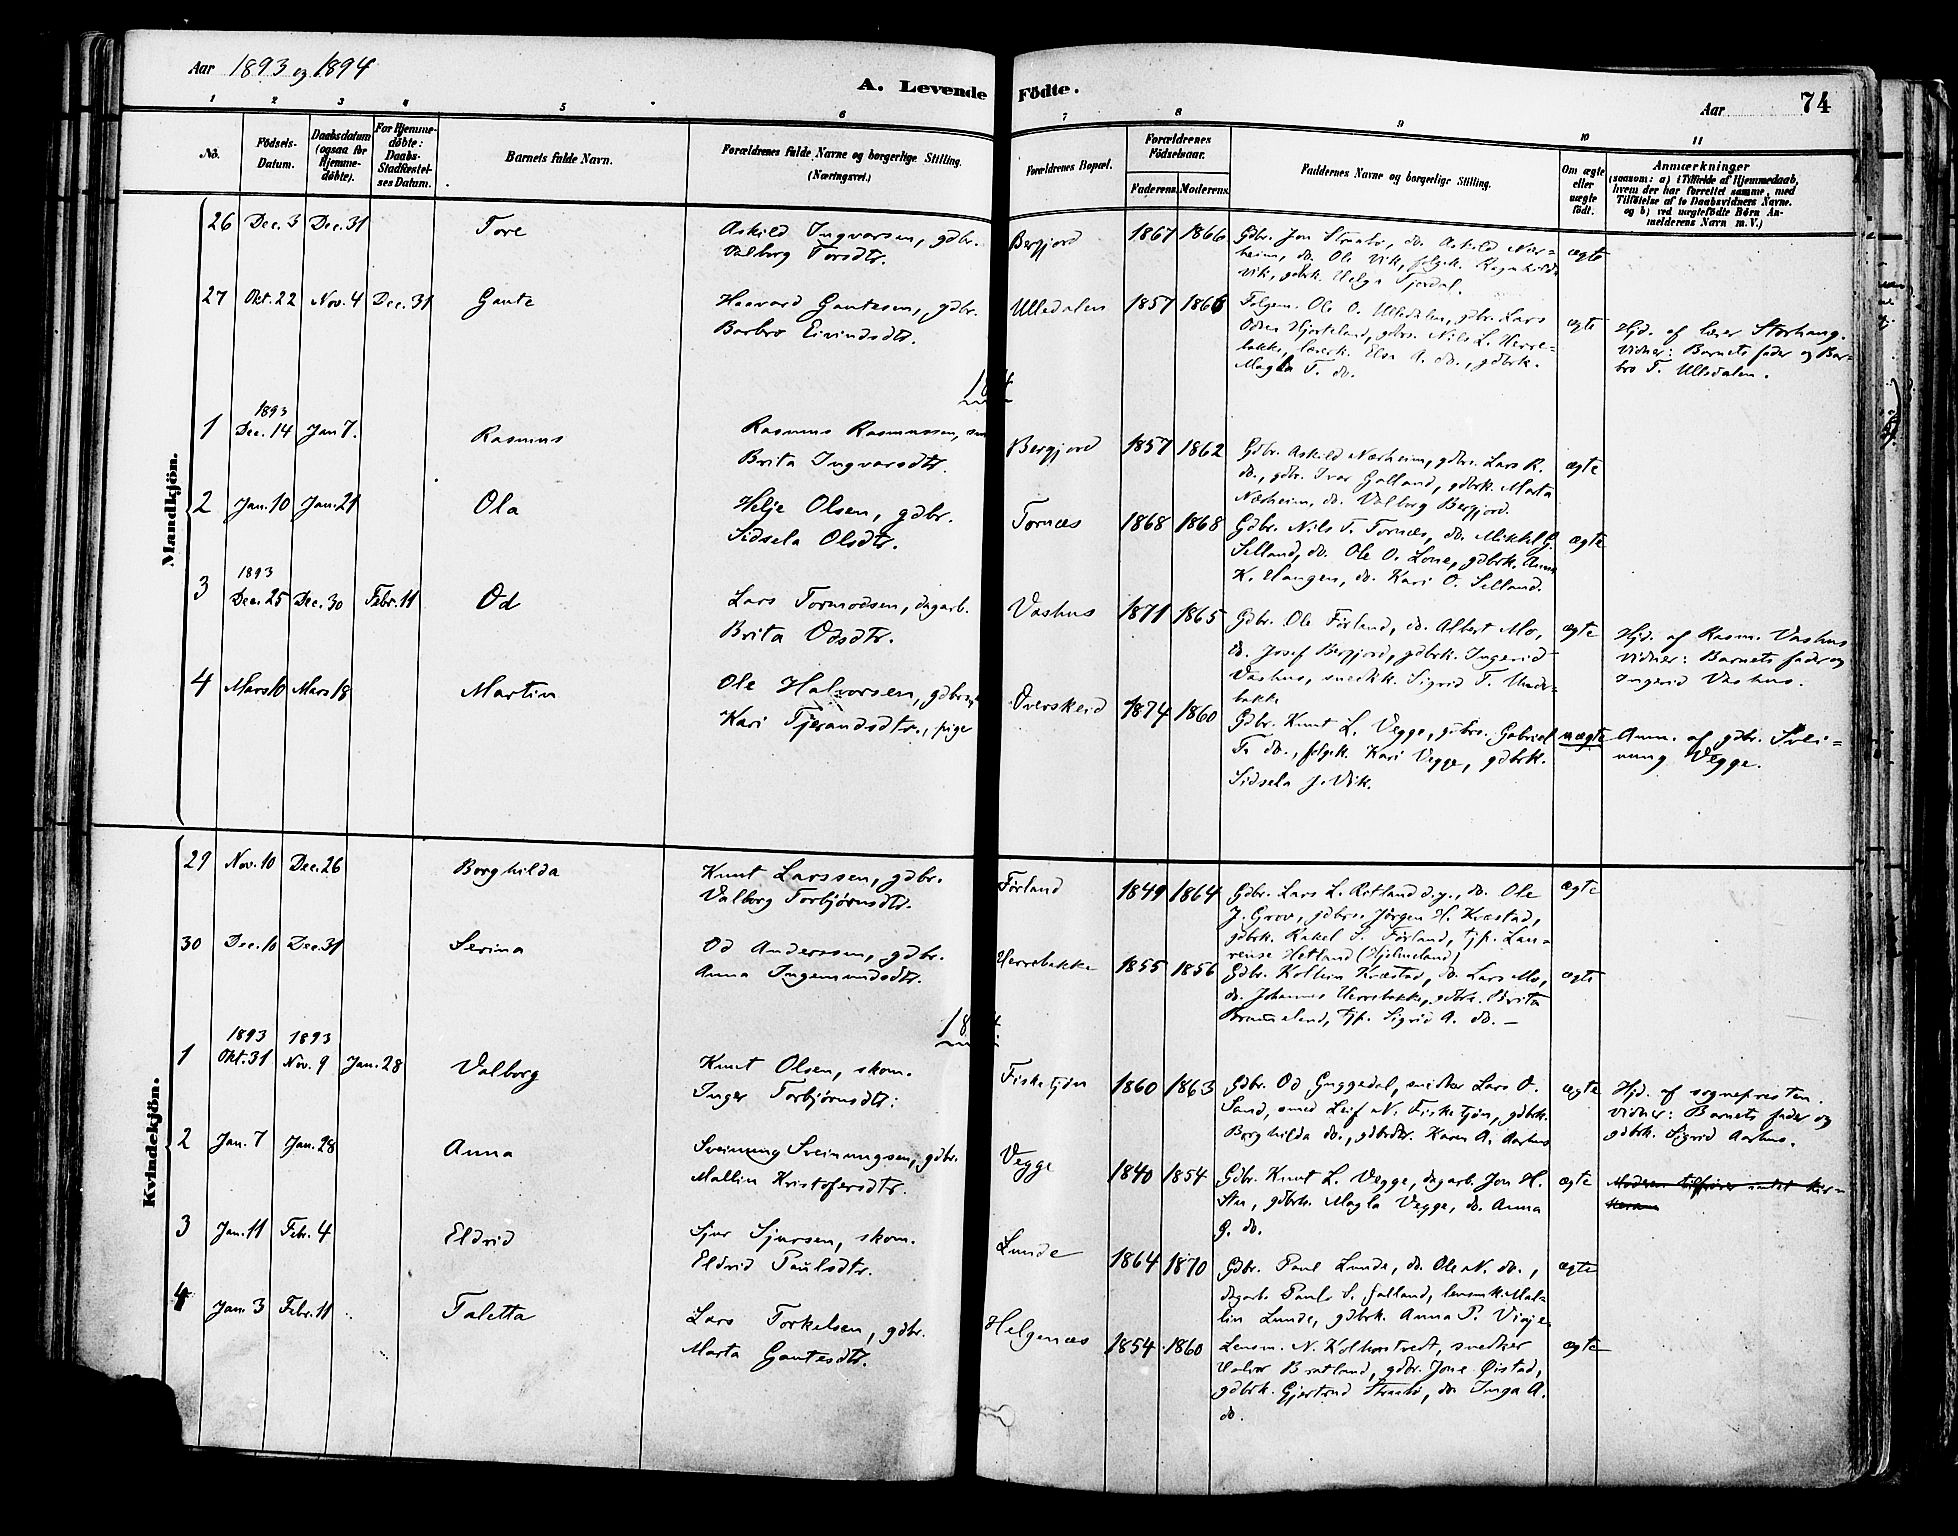 Aar 1893 og 1894
A. Levende Födte.
Aar 74
1 2 3 4 5 6 7 8 9 10 11
No.
Födsels-Datum.
Daabsdatum (ogsaa for Hjemmedöbte).
For Hjemmedöbte: Daabs-Stadfæstelses Datum.
Barnets fulde Navn.
Forældrenes fulde Navne og borgerlige Stilling. (Næringsvei.)
Forældrenes Bopæl.
Forældrenes Födselsaar.
Faderens. Moderens.
Faddernes Navne og borgerlige Stilling.
Om ægte eller uægte födt.
Anmærkninger
(saasom: a) i Tilfælde af Hjemmedaab,
hvem der har forrettet samme, med
Tilföielse af to Daabsvidners Navne.
og b) ved uægtefödte Börn Anmelderens Navn m. V.)
Mandkjön.
26 Dec. 3 Dec. 31 Tore Askild Ingvarsen, gdbr. Bergjord 1867 1866 Gdbr. Jon Straabø, do. Askild Nær- ægte
Valborg Torsdtr. heim, do. Ole Vik, pige Ragnhilda
Vik, gdbrk. Helga Tjerdal.
27 Okt. 22 Nov. 4 Dec. 31 Gaute Haavard Gautesen, gdbr. Ullsdalen 1857 1866 Folgem. Ole O. Ullsdalen, gdbr. Lars ægte Hjd. af lærer Storhaug.
Barbro Eivindsdtr. Odsen Hjorteland, gdbrs. Nils L. Herre- vidner: Barnets fader og Bar-
bakke, lærerk. Elsa A. do., gdbrk. bro T. Ullsdalen.
Magla T. do.
1 1893 Dec. 14 Jan 7. Rasmus Rasmus Rasmussen, Bergjord 1857 1862 Gdbr. Askild Nærheim, gdbr. Lars R. ægte
Brita Ingvarsdtr. do., gdbr. Ivar Galland, gdbrk. Marta
Nærheim, do. Valborg Bergjord.
2 Jan. 10 Jan. 21 Ola Helje Olsen, gdbr. Tornæs 1868 1868 Gdbr. Nils T. Tornæs, do. Mikkel G. ægte
Sidsela Olsdtr. Selland, do. Ole O. Lone, gdbrk. Anna
K. Haugen, do. Kari O. Selland.
3 1893 Dec. 25 Dec. 30 Febr. 11 Od Lars Tormodsen, dagarb. Vashus 1871 1865 Gdbr. Ole Førland, do. Albert Mo, ægte Hjd. af Rasm. Vashus
Brita Odsdtr. do. Josef Bergjord, gdbrk. Ingerid vidner: Barnets fader og
Vashus, snedk. Sigrid T. Under- Ingerid Vashus.
bakke
4 Mars 10 Mars 18 Martin Ole Halvorsen, Overskeid 1874 1860 Gdbr. Knut L. Vegge, gdbrs. Gabriel uægte Anm. af gdbr. Svei-
Kari Tjerandsdtr., pige T. do., pige Kari Vegge, gdbrk. nung Vegge.
Sidsela J. Vik.
Kvindekjön.
29 Nov. 10 Dec. 26 Borghilda Knut Larssen, gdbr. Førland 1849 1864 Gdbr. Lars L. Ritland d.y., do. Ole ægte
Valborg Torbjørnsdtr. J. Grov, gdbrs. Jørgen H. Kvæstad,
gdbrk. Rakel S. Førland, tjp. Lau-
rense Hetland (Hjelmeland)
30 Dec. 10 Dec. 31 Serina Od Anderssen, gdbr. Herrebakke 1855 1856 Gdbr. Kolbein Kvæstad, do. Lars Mo, ægte
Anna Ingemundsdtr. do. Johannes Herrebakke, gdbrk. Brita
Brommeland, tjp. Sigrid A. do. —
1 1893 Okt. 31 1893 Nov. 9 Jan. 28 Valborg Knut Olsen, skom. Fisketjøn 1860 1863 Gdbr. Od Guggedal, snedker Lars O. ægte Hjd. af sognepresten.
Inger Torbjørnsdtr: Sand, smed Leif N. Fisketjøn, gdbrk. vidner: Barnets fader og
Borghilda do., gdbrdtr. Karen A. Aarhus gdbrk. Sigrid Aarhus.
2 Jan. 7 Jan. 28 Anna Sveinung Sveinungsen, gdbr. Vegge 1840 1854 Gdbr. Knut L. Vegge, dagarb. Jon H. ægte
Mallin Kristofersdtr. gdbrk. Magla Vegge, do. Anna
G. do.
3 Jan. 11 Febr. 4 Eldrid Sjur Sjursen, skom. Lunde 1864 1870 Gdbr. Paul Lunde, do. Ole N. do., ægte
Eldrid Paulsdtr. dagarb. Paul S. Galland, lensmk. Mal-
lin Lunde, gdbrk. Anna P.
4 Jan. 3 Febr. 11 Taletta Lars Torkelsen, gdbr. Helgenæs 1854 1860 Lensm. N. Kolbenstvedt, snedker ægte
Marta Gautesdtr. Halvor Bratland, gdbr. Jone Øistad,
gdbrk. Gjertrud Straabø, do. Inga A.
do.